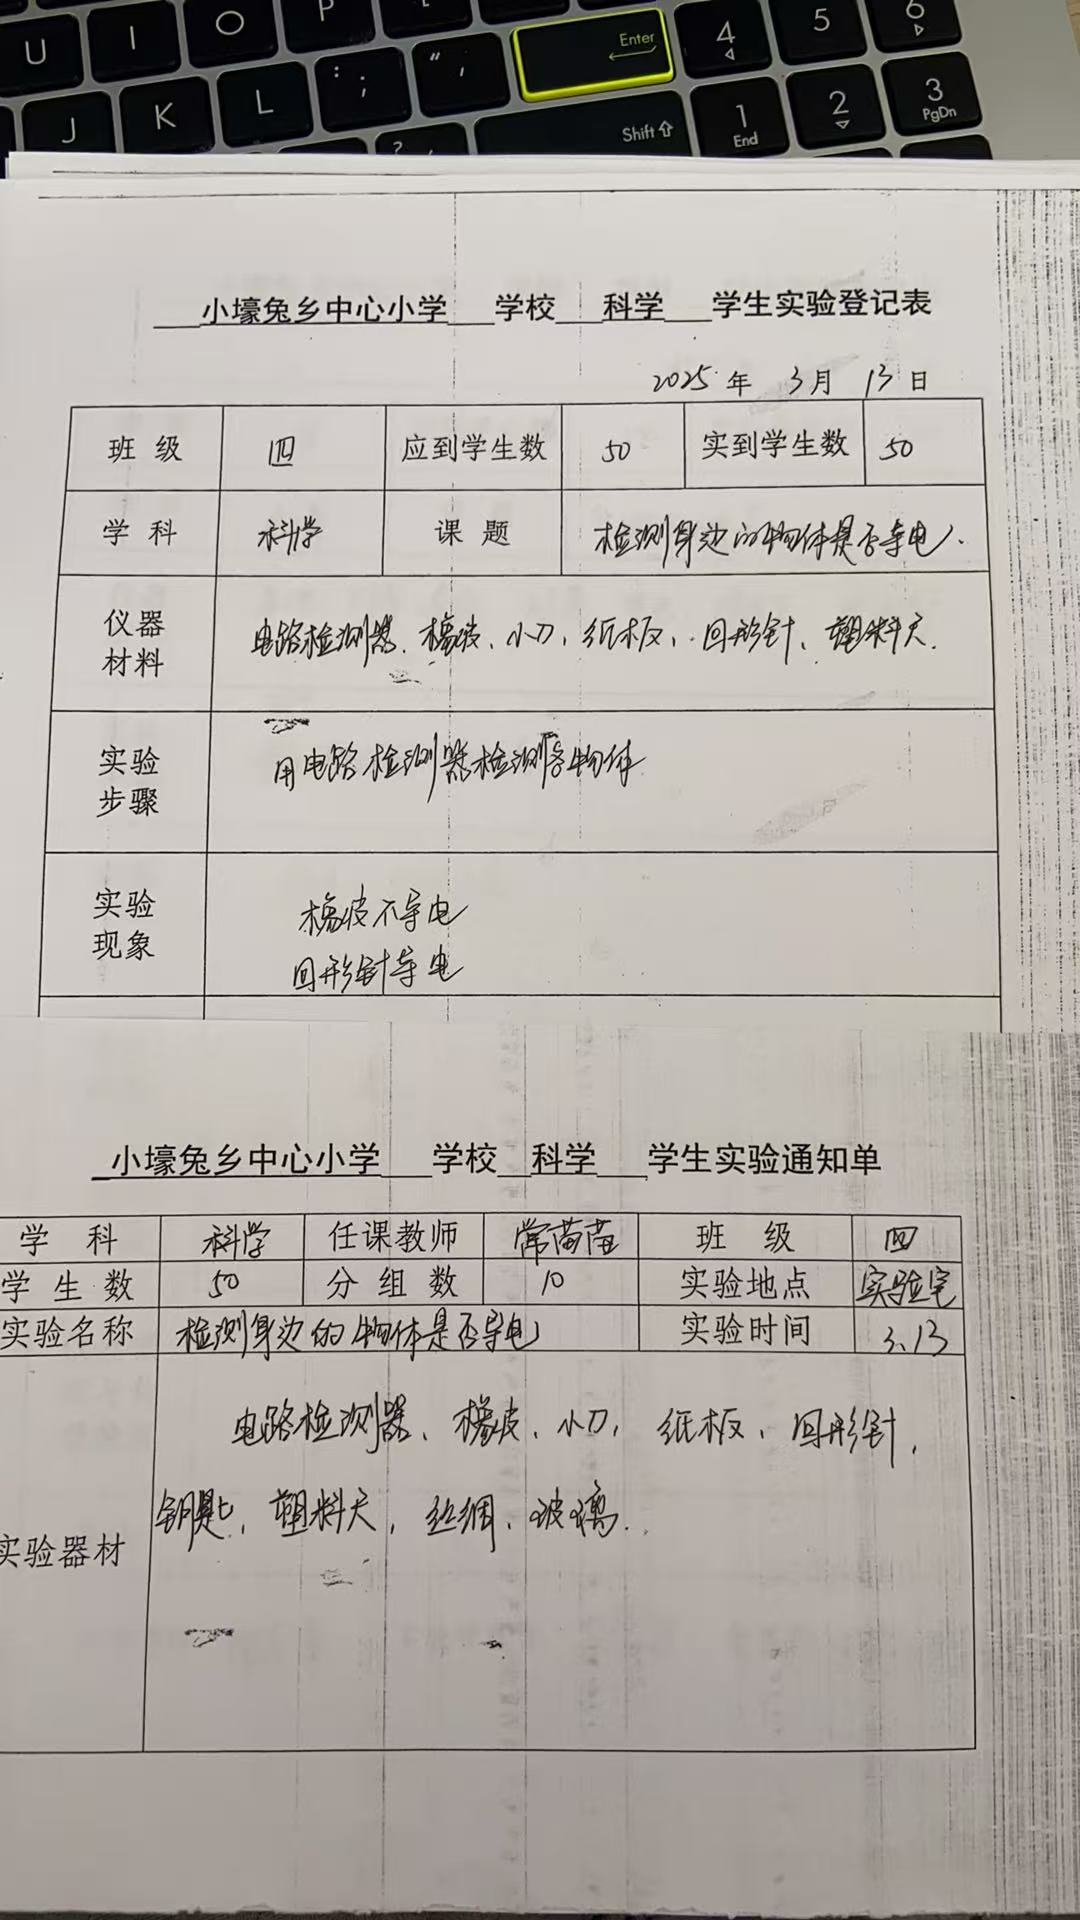 U I O P
Enter
4 5 6
J K L : ; " ,
Shift
1 End 2 3 PgDn
?
小壕兔乡中心小学 学校 科学 学生实验登记表
2025 年 3月 13日
班 级 四 应到学生数 50 实到学生数 50
学 科 科学 课 题 检测身边的物体是否导电.
仪器
材料
电路检测器、橡皮、小刀、纸板、回形针、塑料尺.
实验
步骤
用电路检测器检测各物体
实验
现象
橡皮不导电
回形针导电
小壕兔乡中心小学 学校 科学 学生实验通知单
学 科 科学 任课教师 常苗苗 班 级 四
学 生 数 50 分 组 数 10 实验地点 实验室
实验名称 检测身边的物体是否导电 实验时间 3.13
实验器材
电路检测器、橡皮、小刀、纸板、回形针、
钥匙、塑料尺、丝绸、玻璃.